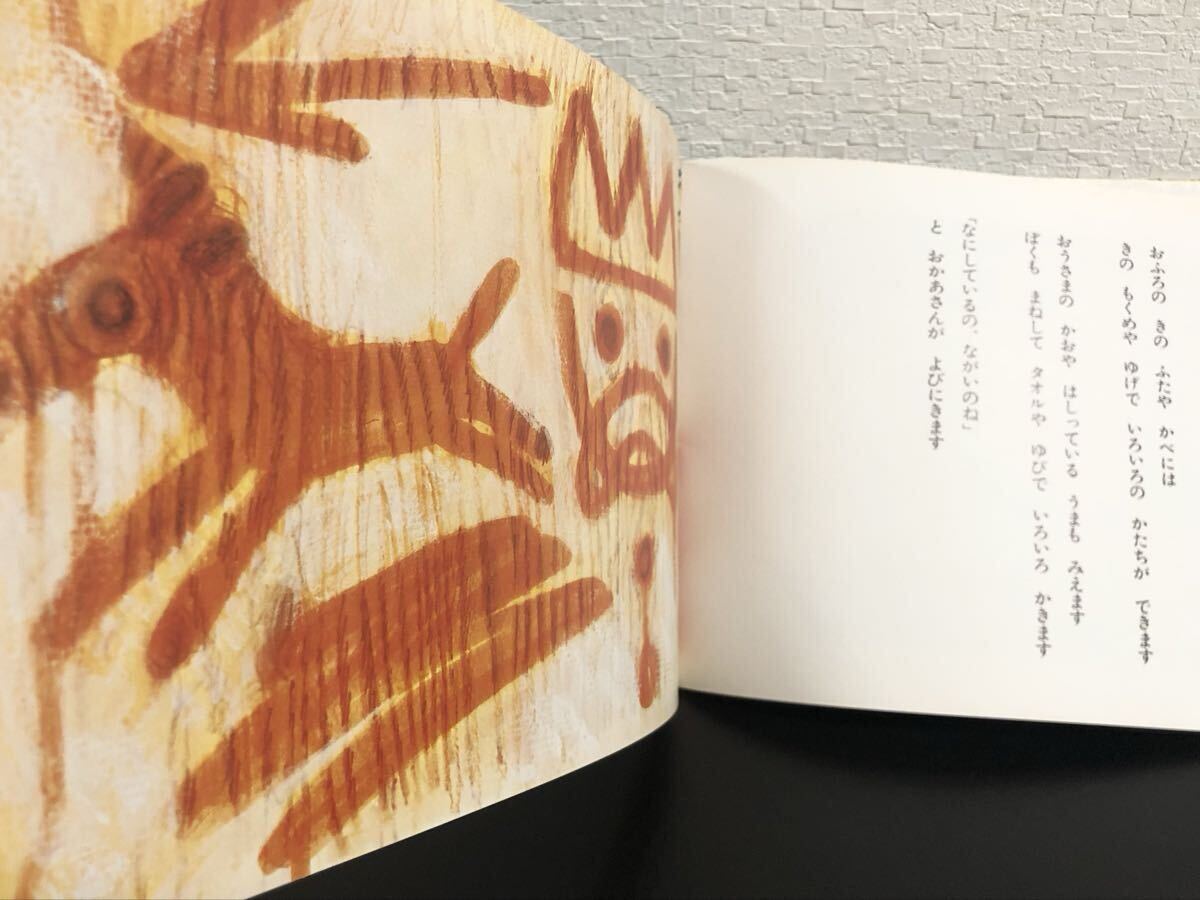 おふろの きの ふたや かべには
きの もくめや ゆげで いろいろの かたちが できます
おうさまの かおや はしっている うまも みえます
ぼくも まねして タオルや ゆびで いろいろ かきます
「なにしているの、ながいのね」
と おかあさんが よびにきます